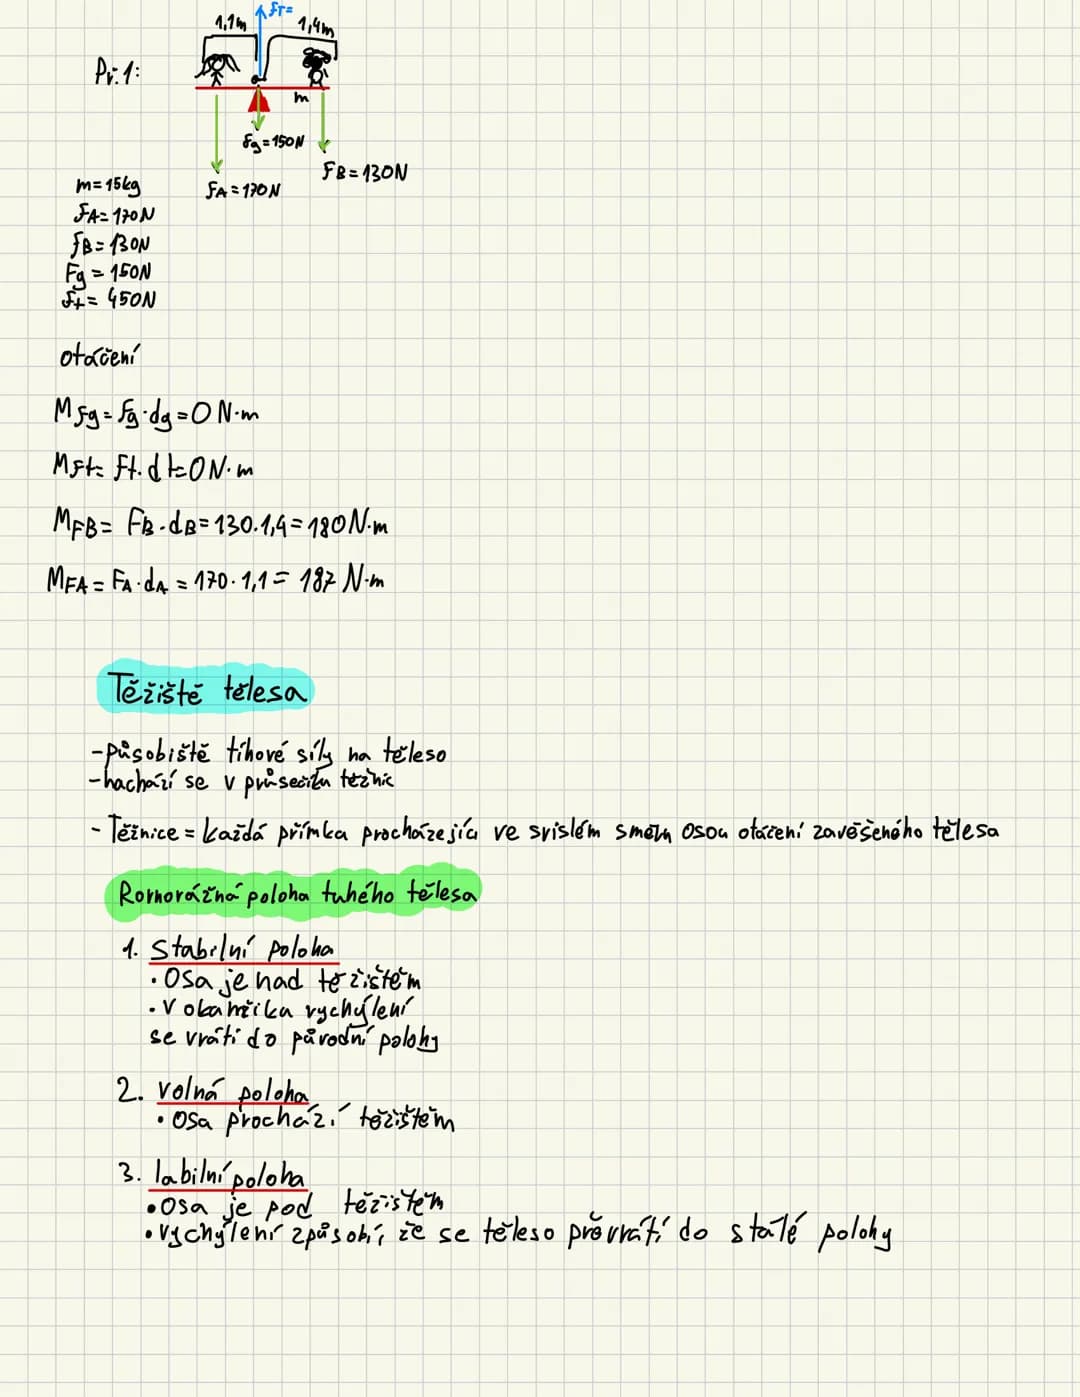 FT=
1,1m 1,4m
Př.1:
m
Fg=150N
FB=130N
FA=170N
m=15kg
FA=170N
FB=130N
Fg=150N
Ft=450N
otáčení
MFg=Fg·dg=0 N·m
MFt=Ft·dt=0 N·m
MFB=FB·dB=130·1,4=180 N·m
MFA=FA·dA=170·1,1=187 N·m
Těžiště tělesa
-působiště tíhové síly na těleso
-nachází se v průsečíku těžnic
-Těžnice = každá přímka procházející ve svislém směru osou otáčení zavěšeného tělesa
Rovnovážná poloha tuhého tělesa
1. Stabilní poloha
• Osa je nad těžištěm
• V okamžiku vychýlení
se vrátí do původní polohy
2. volná poloha
• Osa prochází těžištěm
3. labilní poloha
• Osa je pod těžištěm
• vychýlení způsobí, že se těleso převrátí do stálé polohy